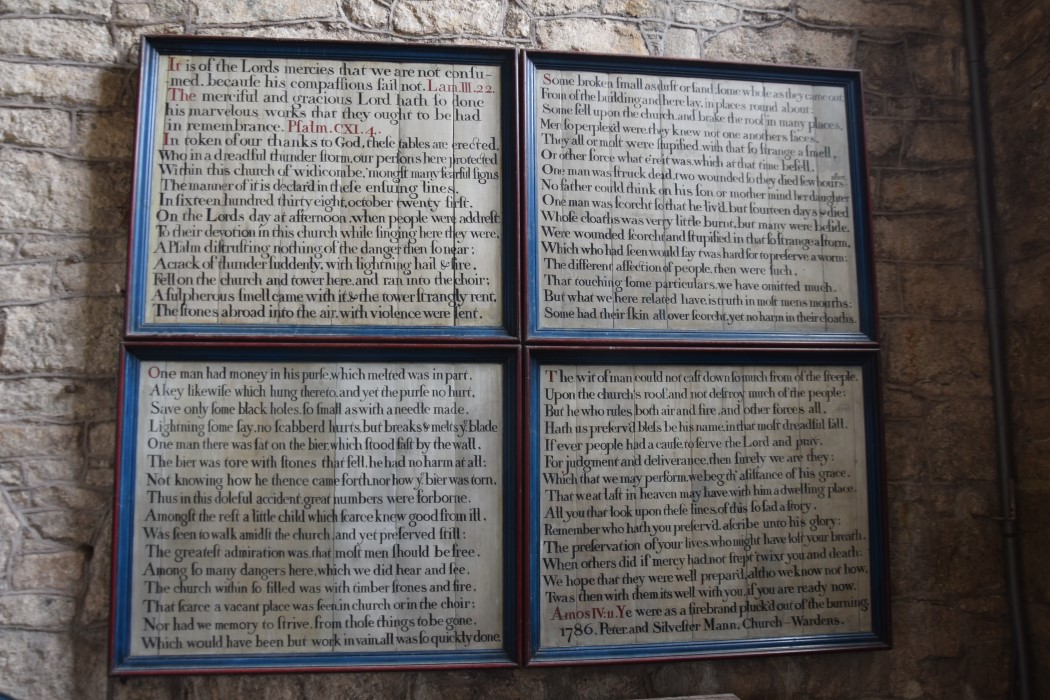 It is of the Lords mercies that we are not conſu-
med, becauſe his compaſſions fail not. Lam.III.22.
The merciful and gracious Lord hath ſo done
his marvelous works that they ought to be had
in remembrance. Pſalm.CXI.4.
In token of our thanks to God, theſe tables are erected,
Who in a dreadful thunder ſtorm, our perſons here protected
Within this church of widicombe, 'mongſt many fearful ſigns
The manner of it is declar'd in theſe enſuing lines.
In ſixteen hundred thirty eight, october twenty firſt.
On the Lords day at afternoon, when people were addreſt
To their devotion in this church while ſinging here they were,
A Pſalm diſtruſting nothing of the danger then ſo near:
A crack of thunder ſuddenly, with lightning hail & fire,
Fell on the church and tower here, and ran into the choir;
A ſulpherous ſmell came with it, & the tower ſtrangly rent,
The ſtones abroad into the air, with violence were ſent.
Some broken ſmall as duſt or ſand, ſome whole as they came out,
From of the building and here lay, in places round about;
Some fell upon the church, and brake the roof in many places,
Men ſo perplex'd were, they knew not one anothers faces.
They all or moſt were ſtupified, with that ſo ſtrange a ſmell,
Or other force what e're it was, which at that time befell.
One man was ſtruck dead, two wounded ſo they died few hours after,
No father could think on his ſon, or mother mind her daughter
One man was ſcorcht ſo that he liv'd, but fourteen days & died
Whoſe cloaths was very little burnt, but many were beſide.
Were wounded ſcorch'd and ſtupified in that ſo ſtrange a ſtorm,
Which who had ſeen would ſay twas hard for to preſerve a worm:
The different affection of people, then were ſuch,
That touching ſome particulars, we have omitted much.
But what we here related have, is truth in moſt mens mouths:
Some had their ſkin all over ſcorcht, yet no harm in their cloaths.
One man had money in his purſe, which melted was in part,
A key likewiſe which hung thereto, and yet the purſe no hurt,
Save only ſome black holes, ſo ſmall as with a needle made,
Lightning ſome ſay, no ſcabberd hurts, but breaks & melts yᵉ blade
One man there was ſat on the bier, which ſtood faſt by the wall,
The bier was tore with ſtones that fell, he had no harm at all:
Not knowing how he thence came forth, nor how yᵉ bier was torn,
Thus in this doleful accident, great numbers were forborne.
Amongſt the reſt a little child which ſcarce knew good from ill,
Was ſeen to walk amidſt the church, and yet preſerved ſtill:
The greateſt admiration was, that moſt men ſhould be free,
Among ſo many dangers here, which we did hear and ſee.
The church within ſo filled was with timber ſtones and fire,
That ſcarce a vacant place was ſeen, in church or in the choir;
Nor had we memory to ſtrive, from thoſe things to be gone,
Which would have been but work in vain, all was ſo quickly done
The wit of man could not caſt down ſo much from of the ſteeple,
Upon the church's roof, and not deſtroy much of the people:
But he who rules, both air and fire, and other forces all,
Hath us preſerv'd bleſs be his name, in that moſt dreadful fall.
If ever people had a cauſe, to ſerve the Lord and pray,
For judgment and deliverance, then ſurely we are they:
Which that we may perform, we beg th' aſiſtance of his grace,
That we at laſt in heaven may have, with him a dwelling place.
All you that look upon theſe lines, of this ſo ſad a ſtory,
Remember who hath you preſerv'd, aſcribe unto his glory:
The preſervation of your lives, who might have loſt your breath,
When others did if mercy had, not ſtept twixt you and death:
We hope that they were well prepar'd, altho we know not how,
Twas then with them its well with you, if you are ready now.
Amos IV:11. Ye were as a firebrand pluck'd out of the burning:
1786. Peter and Silveſter Mann, Church-Wardens.